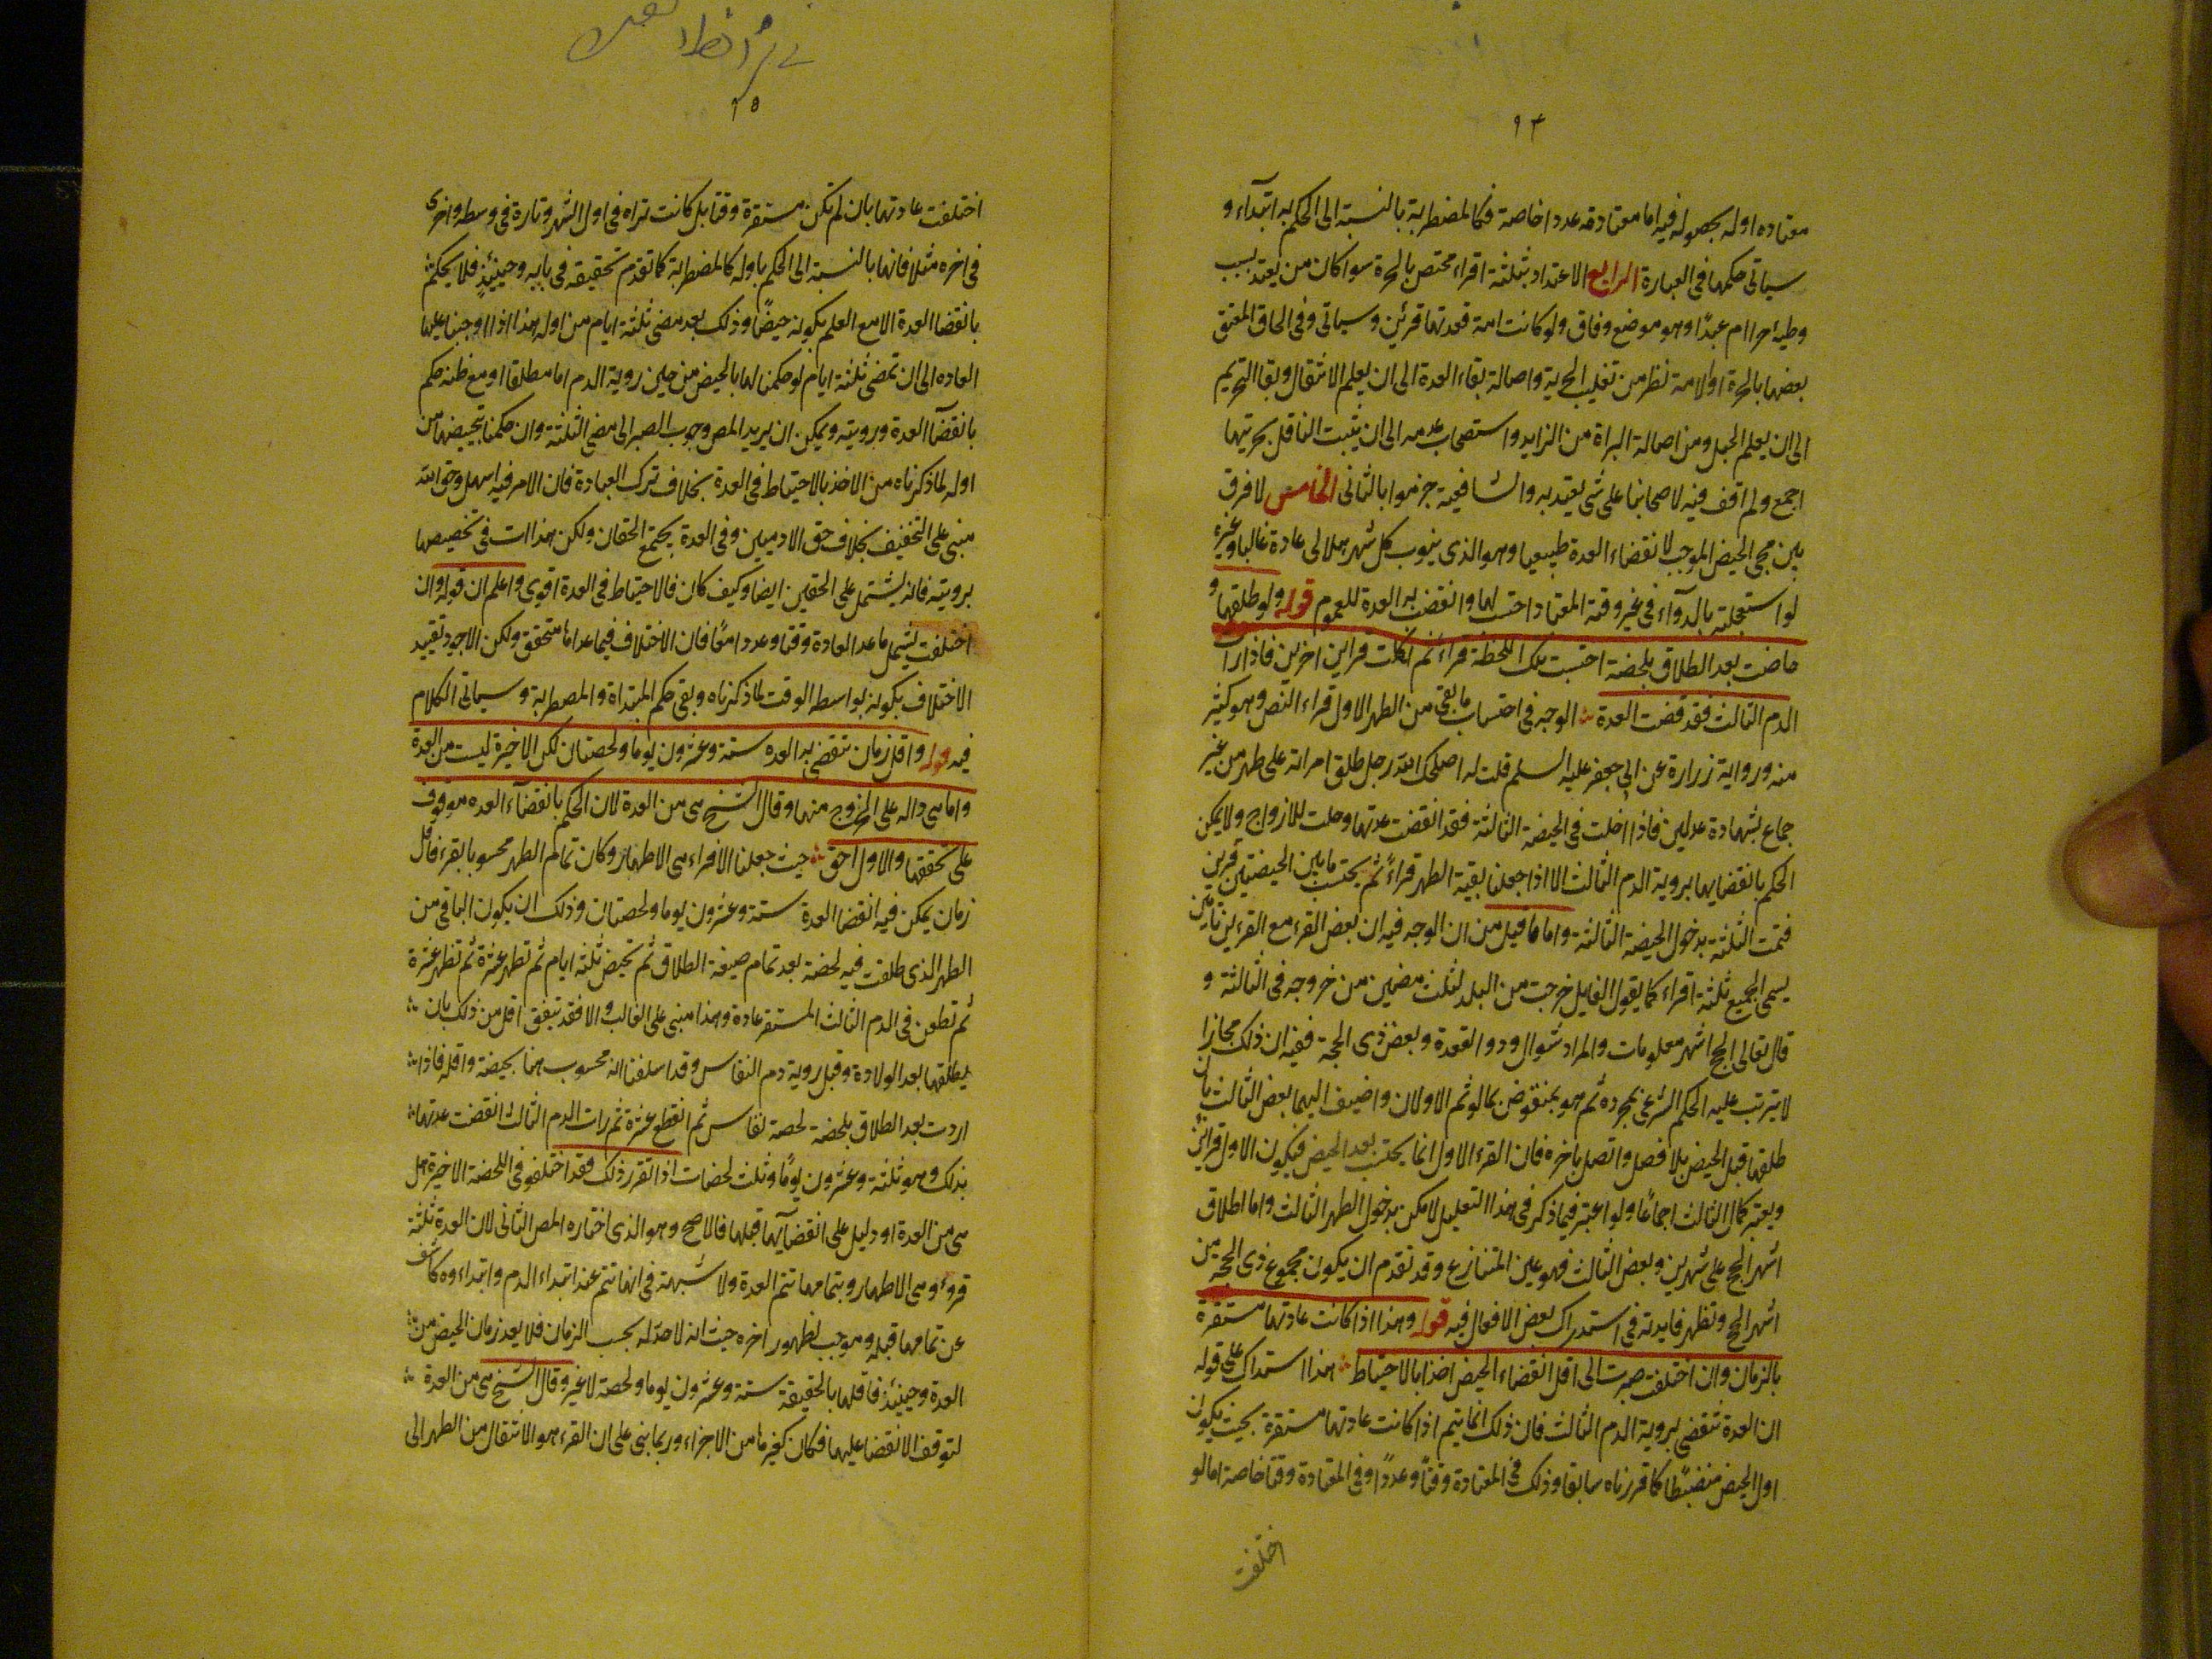 ٩٤
معتاده اوله بحصوله فيه اما معتادته عددا خاصة فكالمضطربة بالنسبة الى الحكم به ابتدآء و
سياتى حكمها فى العبارة الرابع الاعتداد بثلثة اقراء مختص بالحرة سوا كان من يعتد بسبب
وطيه حرا ام عبدًا وهو موضع وفاق ولو كانت امة فعدتها قرئين وسياتى وفى الحاق المعتق
بعضها بالحرة او الامة نظر من تغليب الحرية واصالة بقاء العدة الى ان يعلم الانتقال وبقا التحريم
الى ان يعلم الحل ومن اصالة البراة من الزايد واستصحاب عدمه الى ان يثبت الناقل بحريتها
اجمع ولم اقف فيه لاصحابنا على شى يعتد به والشافعية جزموا بالثانى الخامس لا فرق
بين مجى الحيض الموجب لانقضاء العدة طبيعيا وهو الذى ينوب كل شهر هلالى عادة غالبا وغيره
لو استعجلته بالدوآء فى غير وقته المعتاد احتسب لها وانقضت به العدة للعموم قوله ولو طلقها و
حاضت بعد الطلاق بلحضة احتسبت تلك اللحظة قراء ثم اكملت قراين اخرين فاذا رأ
الدم الثالث فقد قضت العدة الوجه فى احتساب ما بقى من الطهر الاول قراء النص وهو كثير
منه ورواية زرارة عن ابى جعفر عليه السلم قلت له اصلحك الله رجل طلق امراته على طهر من غير
جماع بشهادة عدلين فاذا دخلت فى الحيضة الثالثة فقد انقضت عدتها وحلت للازواج ولا يمكن
الحكم بانقضايها بروية الدم الثالث الا اذا جعلنا بقية الطهر قراءً ثم يحتسب ما بين الحيضتين قرين
فتمت الثلثة بدخول الحيضة الثالثة واما ما قيل من ان الوجه فيه ان بعض القرء مع القرءين تامين
يسمى الجميع ثلثة اقراء كما يقول القايل خرجت من البلد لثلث مضين من خروجه فى الثالثة و
قال تعالى الحج اشهر معلومات والمراد شوال وذو القعدة وبعض ذى الحجة ففيه ان ذلك مجازا
لا يترتب عليه الحكم الشرعى بمجرده ثم هو بمنقوض بما لو ثم الاولان واضيف اليهما بعض الثالث بان
طلقها قبل الحيض بلا فصل واتصل باخره فان القرء الاول انما يحتسب بعد الحيض فيكون الاول قراين
ويعتبر كمال الثالث اجماعًا ولو اعتبر فيما ذكر فى هذا التعليل لامكن بدخول الطهر الثالث واما اطلاق
اشهر الحج على شهرين وبعض الثالث فهو عين المتنازع وقد تقدم ان يكون مجموع ذى الحجة من
اشهر الحج وتظهر فايدته فى استدراك بعض الافعال فيه قوله وهذا اذا كانت عادتها مستقرة
بالزمان وان اختلفت صبرت الى اقل انقضاء الحيض اخذا بالاحتياط هذا استدراك على قوله
ان العدة تنقضى بروية الدم الثالث فان ذلك انما يتم اذا كانت عادتها مستقرة بحيث يكون
اول الحيض منضبطًا كما قررناه سابقا وذلك فى المعتادة وقتًا وعددًا وفى المعتادة وقتا خاصة اما لو
اختلفت
٩٥
اختلفت عادتها بان لم تكن مستقرة وقتا بل كانت تراه فى اول الشهر وتارة فى وسطه واخرى
فى اخره مثلا فانها بالنسبة الى الحكم باوله كالمضطربة كما تقدم تحقيقه فى بابه وحينئذٍ فلا يحكم
بانقضا العدة الا مع العلم بكونه حيضًا وذلك بعد مضى ثلثة ايام من اوله هذا اذا اوجبنا عليها
العاده الى ان تمضى ثلثة ايام لو حكمنا لها بالحيض من حين روية الدم اما مطلقا او مع ظنه حكم
بانقضآ العدة ورويته ويمكن ان يريد المص وجوب الصبر الى مضى الثلثة وان حكمنا بتحيضها من
اوله لما ذكرناه من الاخذ بالاحتياط فى العدة بخلاف ترك العبادة فان الامر فيه اسهل وحق الله
مبنى على التخفيف بخلاف حق الادميين وفى العدة يجتمع الحقان ولكن هذا ات فى تخصيصها
برويته فانه يشتمل على الحقين ايضا وكيف كان فالاحتياط فى العدة اقوى واعلم ان قوله وان
اختلفت يشمل ما عدا المعادة وقتا وعددا معًا فان الاختلاف فيما عداها متحقق ولكن الاجود تقييد
الاختلاف بكونه بواسطه الوقت لما ذكرناه وبقى حكم المبتداة والمضطربة وسياتى الكلام
فيه قوله واقل زمان تنقضى به العده ستة وعشرون يوما ولحضتان لكن الاخيرة ليست من العدة
وانما هى داله على الخروج منها وقال الشيخ هى من العدة لان الحكم بانقضآء العده موقوف
على تحققها والاول احق حيث جعلنا الاقراء هى الاطهار وكان تمام الطهر محسوبا بالقرء فاقل
زمان يمكن فيه انقضا العدة ستة وعشرون يوما ولحضتان وذلك ان يكون الباقى من
الطهر الذى طلقت فيه لحضة بعد تمام صيغة الطلاق ثم تحيض ثلثه ايام ثم تطهر عشرة ثم تطهر عشرة
ثم تطعن فى الدم الثالث المستقر عادة وهذا مبنى على الغالب والا فقد يتفق اقل من ذلك بان
يطلقها بعد الولادة وقبل روية دم النفاس وقد اسلفنا انه محسوب هنا بحيضة واقله فاذا
اردت بعد الطلاق بلحضة لحصة نفاس ثم انقطع عشرة ثم رات الدم الثالث انقضت عدتها
بذلك وهو ثلثة وعشرون يومًا وثلث لحضات اذا تقرر ذلك فقد اختلفو فى اللحضة الاخيرة هل
هى من العدة او دليل على انقضآيها قبلها فالاصح وهو الذى اختاره المص الثانى لان العدة ثلثة
قروء وهى الاطهار وبتمامها تتم العدة ولا شبهة فى انها تتم عند ابتداء الدم وابتداءوه كاشف
عن تمامها قبله وموجب لظهور اخره حيث انه لا حدّ له بحسب الزمان فلا يعد زمان الحيض من
العدة وحينئذ فاقلها بالحقيقة ستة وعشرون يوما ولحصة لا غير وقال الشيخ هى من العدة
لتوقف الانقضا عليها فكان كغيرها من الاجزاء وربما بنى على ان القرء هو الانتقال من الطهر الى